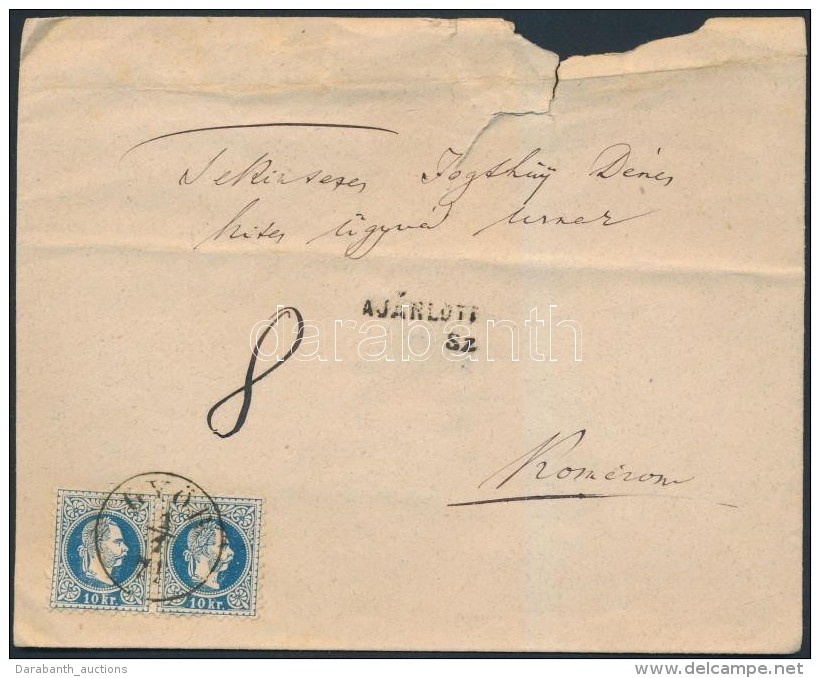 Tekintetes Dénes
hites ügyvéd urnak
AJÁNLOTT
Sz
darabanth
8
Komárom
GYŐR
10 kr. 10 kr.
Darabanth_auctions
www.delcampe.net